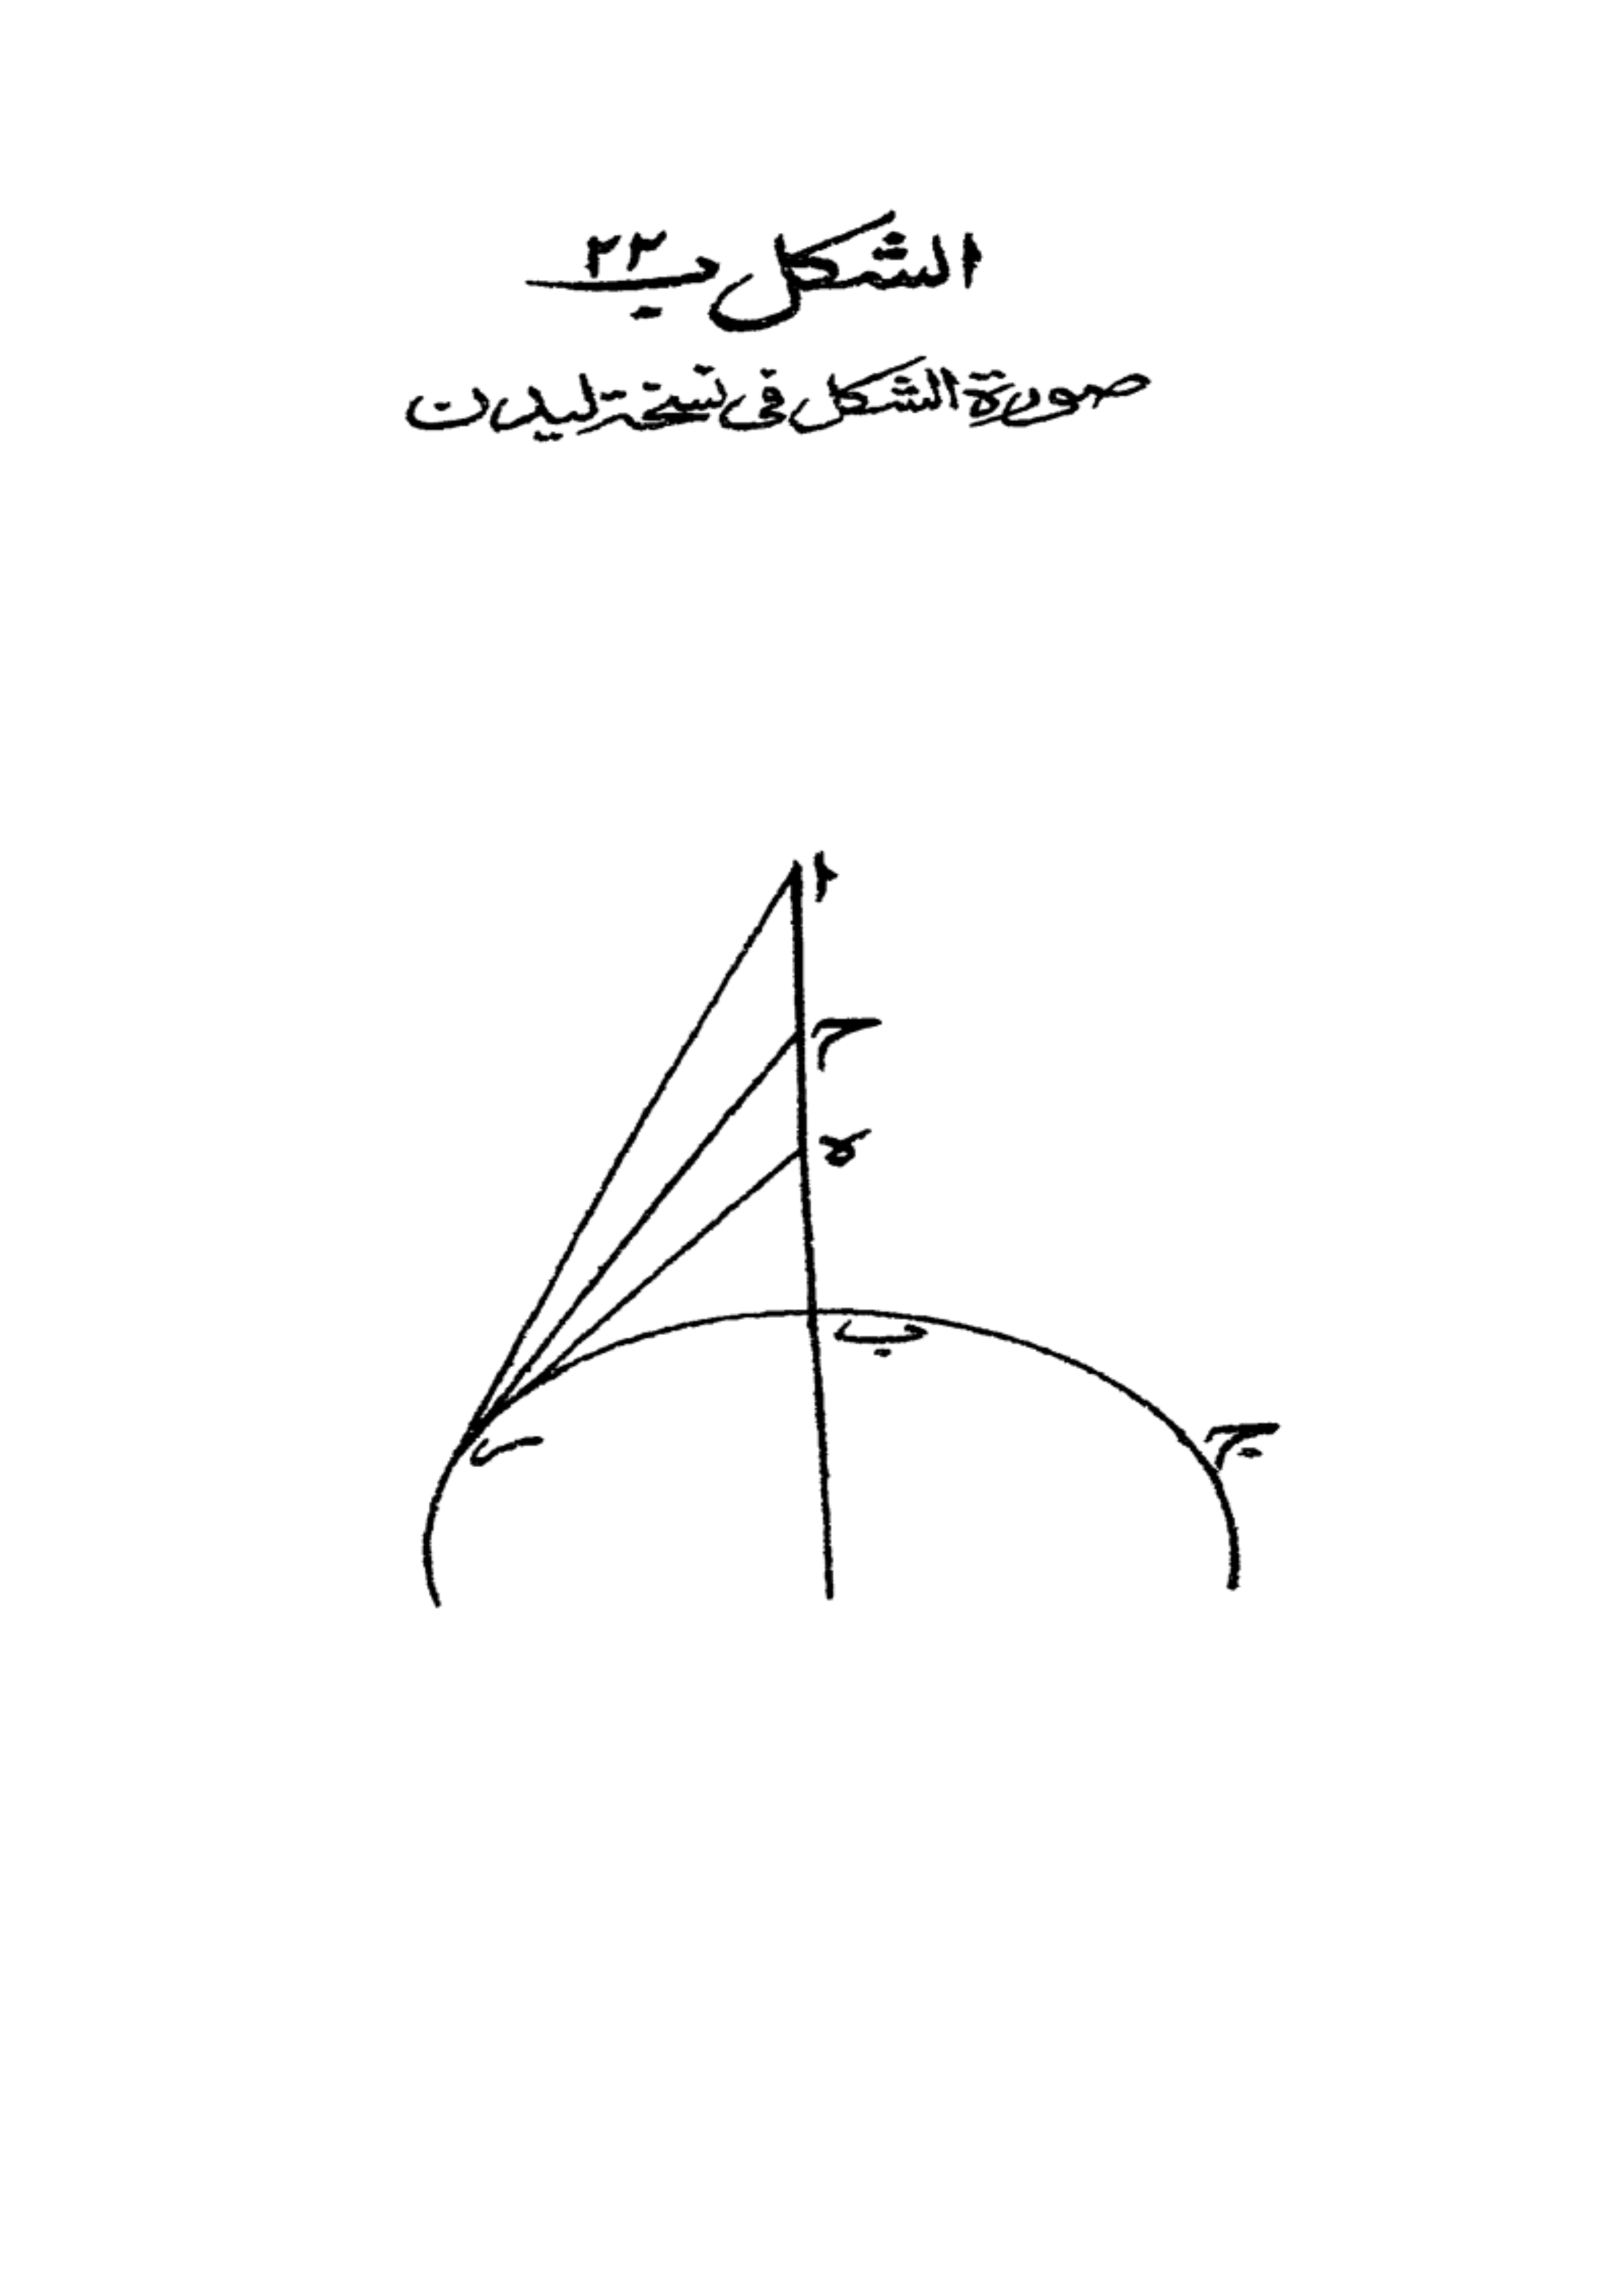 الشكل ٢٣
صورة الشكل فى نسخة ليدن
ا
ح
ه
ب
ج